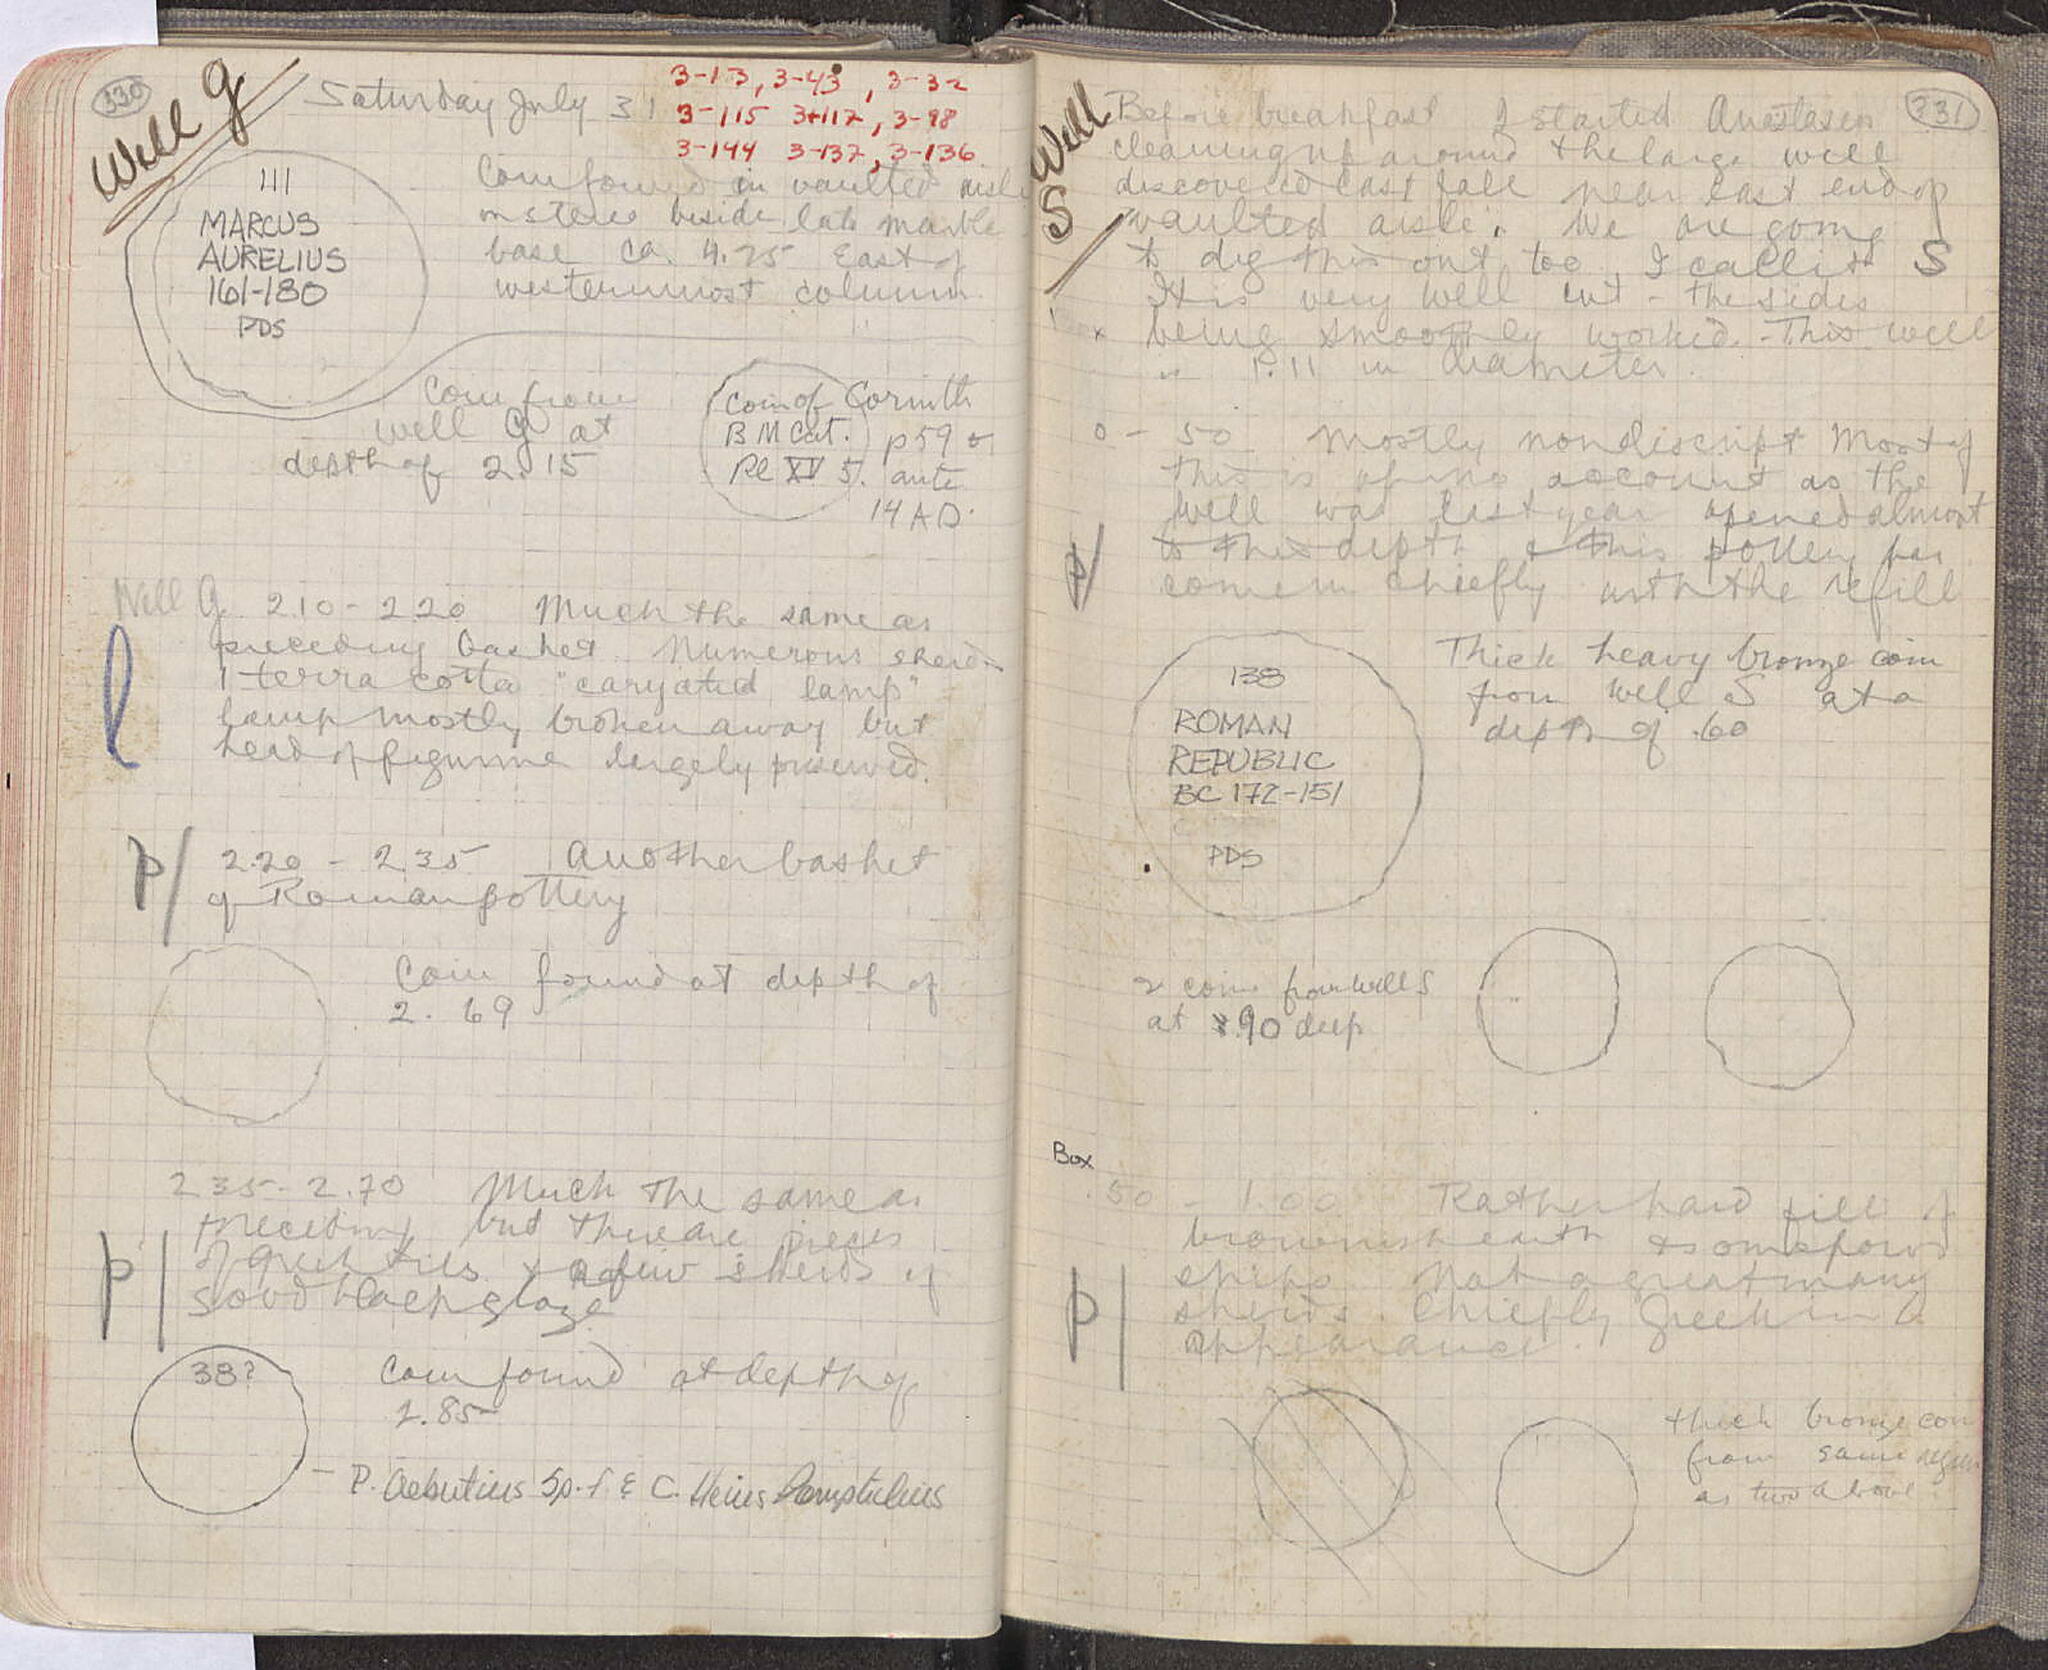 330
Well g
Saturday July 31
3-13, 3-43, 3-32
3-115 3+117, 3-98
3-144 3-137, 3-136
111
MARCUS
AURELIUS
161-180
PDS
Coin found in vaulted aisle
on stereo beside late marble
base ca. 4.75 East of
westernmost column.
Coin from
well G at
depth of 2.15
Coin of Corinth
B M Cat. p 59 or
Pl XV 5. ante
14 AD.
Well G. 2 10 - 2 20 Much the same as
preceding basket. Numerous sherds
1 terra cotta "caryatid lamp"
lamp mostly broken away but
head of figurine largely preserved.
l
p/
2.20 - 2 35 Another basket
of Roman pottery
Coin found at depth of
2. 69
2 35 - 2.70 Much the same as
preceding but there are pieces
of Greek tiles & a few sherds of
good black glaze
p|
38?
Coin found at depth of
2.85
- P. Aebutius Sp. f & C. Heius Pamphilius
331
Well
S
Before breakfast I started Anastasen
cleaning up around the large well
discovered last fall near east end of
vaulted aisle. We are going
to dig this out too, I call it S
It is very well cut - the sides
x being smoothly worked. This well
is 1.11 in diameter.
0 - 50 Mostly nondiscript Most of
this is of no account as the
well was last year opened almost
to this depth & this pottery has
come in chiefly with the refill
p/
138
ROMAN
REPUBLIC
BC 172-151
PDS
Thick heavy bronze coin
from Well S at a
depth of .60
2 coins from well S
at .90 deep
Box
.50 - 1.00 Rather hard fill of
brownish earth & some poros
chips. Not a great many
sherds. Chiefly Greek in
appearance.
p|
thick bronze coin
from same region
as two above.